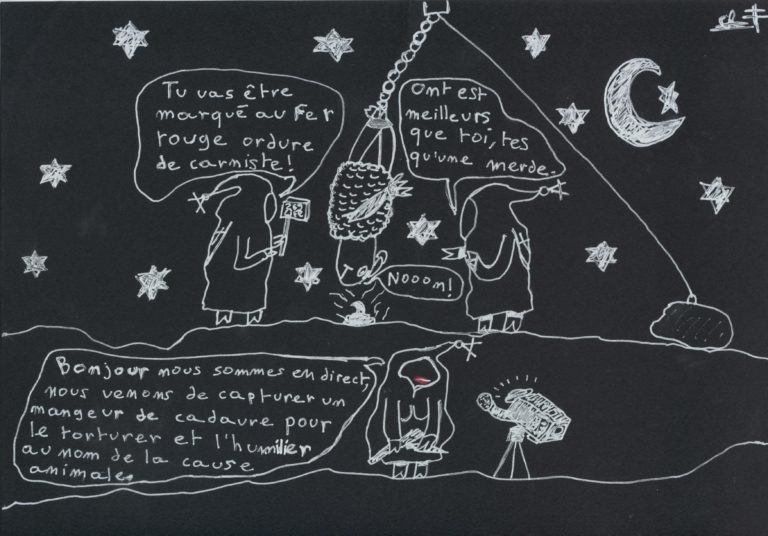 Tu vas être
marqué au fer
rouge ordure
de carniste!
Ont est
meilleurs
que toi, tes
qu'une merde.
Nooom!
Bonjour nous sommes en direct,
nous venons de capturer un
mangeur de cadavre pour
le torturer et l'humilier
au nom de la cause
animale.